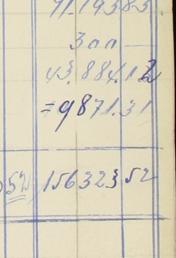 71.19383
300
43.884.12
=9871.31
52 15632352